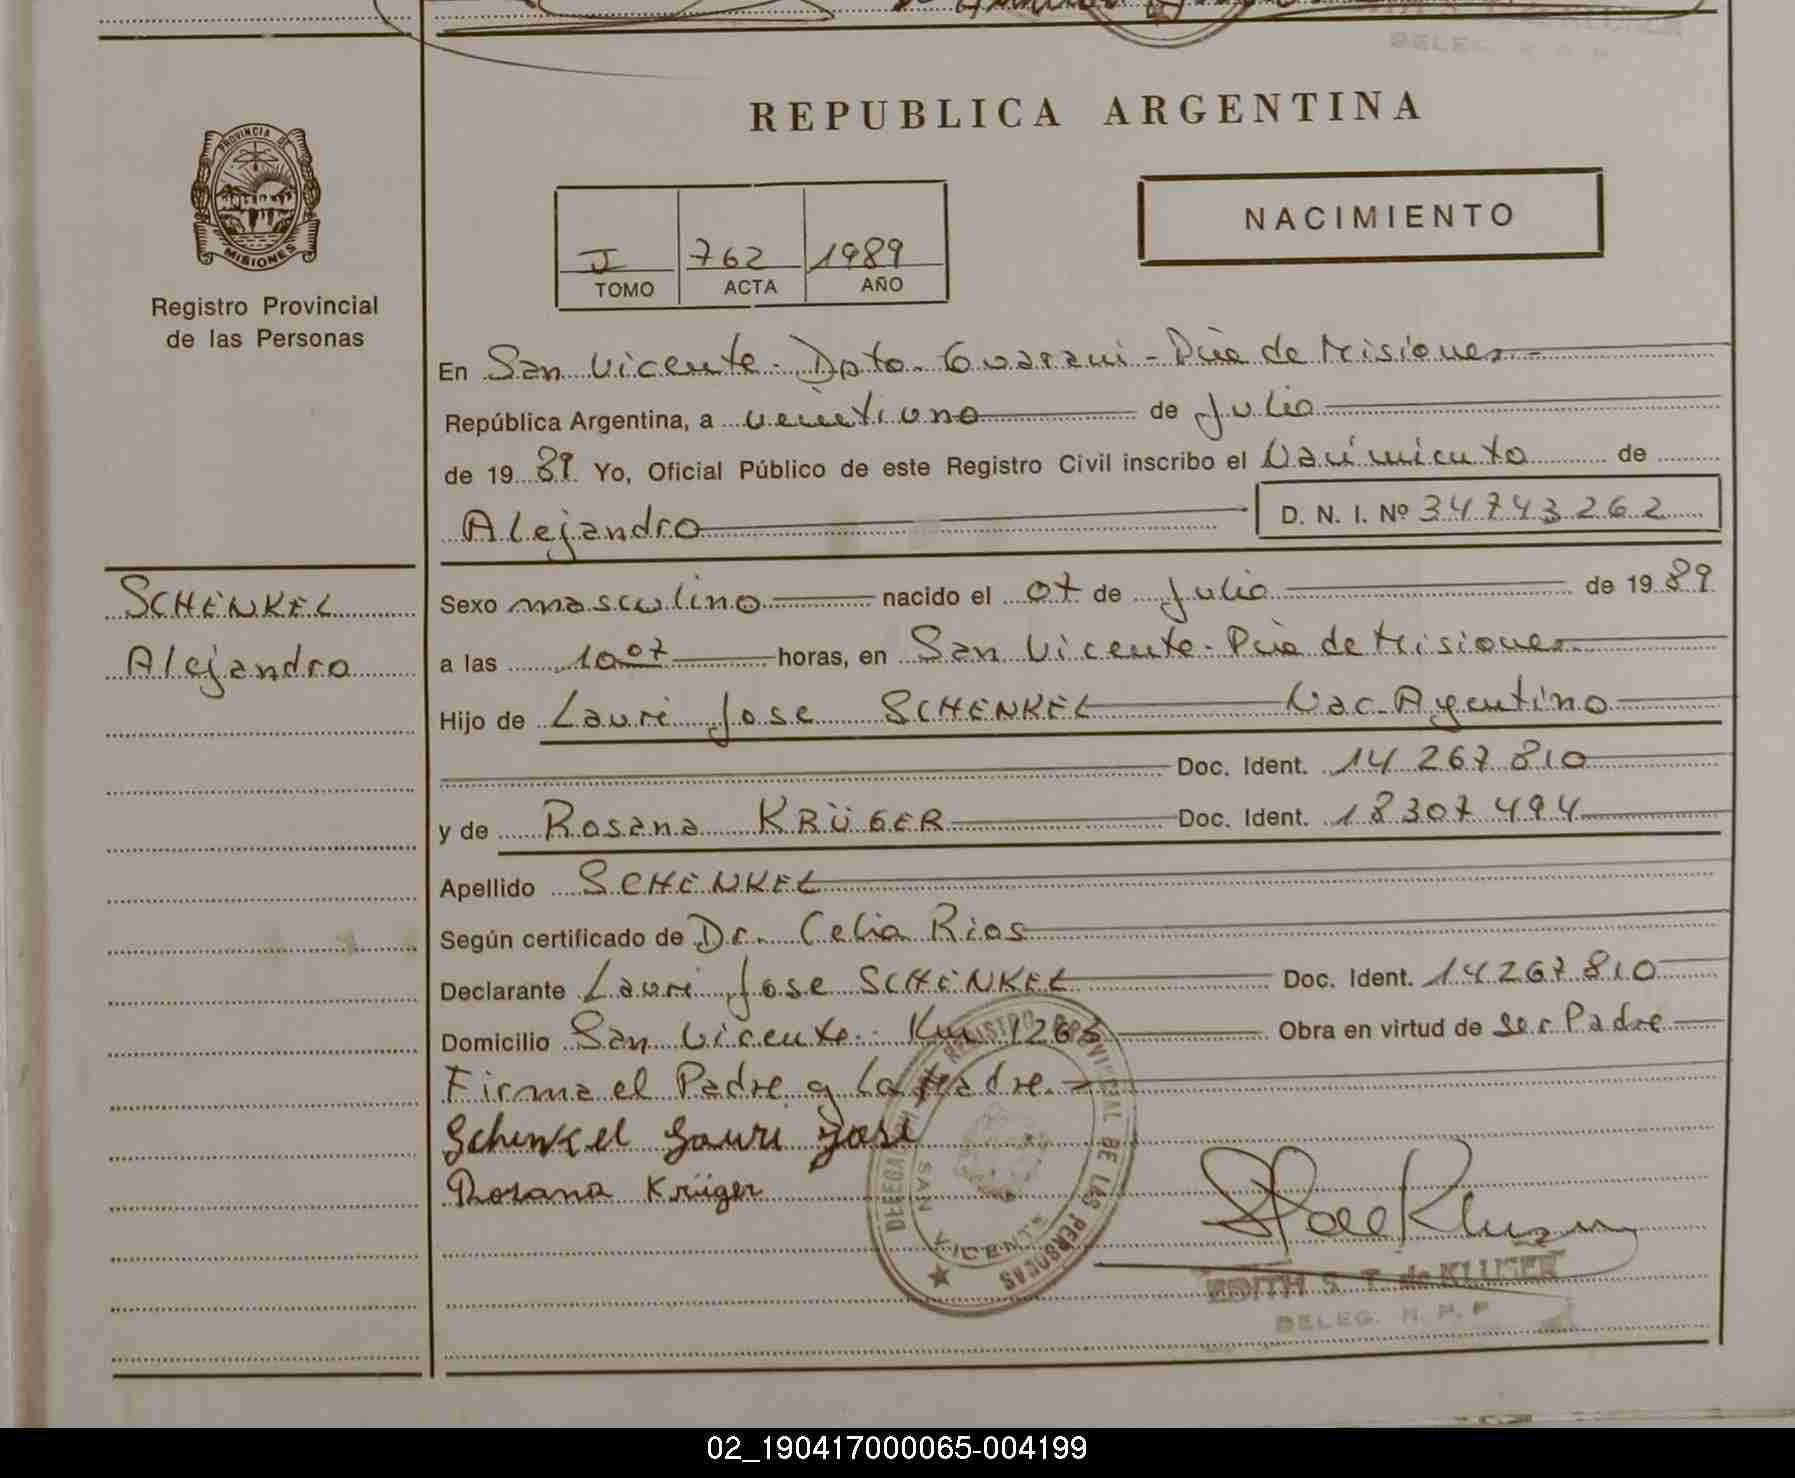 DELEG. R. P. P.
REPUBLICA ARGENTINA
PROVINCIA DE
MISIONES
Registro Provincial
de las Personas
NACIMIENTO
I 762 1989
TOMO ACTA AÑO
En San Vicente - Dpto. Guarani - Pcia de Misiones
República Argentina, a veintiuno de Julio
de 1989 Yo, Oficial Público de este Registro Civil inscribo el Nacimiento de
Alejandro D. N. I. Nº 34743262
SCHENKEL
Alejandro
Sexo masculino nacido el 07 de Julio de 1989
a las 10 07 horas, en San Vicente - Pcia de Misiones
Hijo de Lauri Jose SCHENKEL Nac. Argentino
Doc. Ident. 14 267 810
y de Rosana KRÜGER Doc. Ident. 18307494
Apellido SCHENKEL
Según certificado de Dr. Celia Rios
Declarante Lauri Jose SCHENKEL Doc. Ident. 14267810
Domicilio San Vicente. Km 1263 Obra en virtud de ser Padre
Firma el Padre y La Madre.
Schenkel Lauri Jose
Rosana Krüger
DELEGACION REGISTRO PROVINCIAL DE LAS PERSONAS
SAN VICENTE
EDITH S. T. de KLUGER
DELEG. R. P. P.
02_190417000065-004199